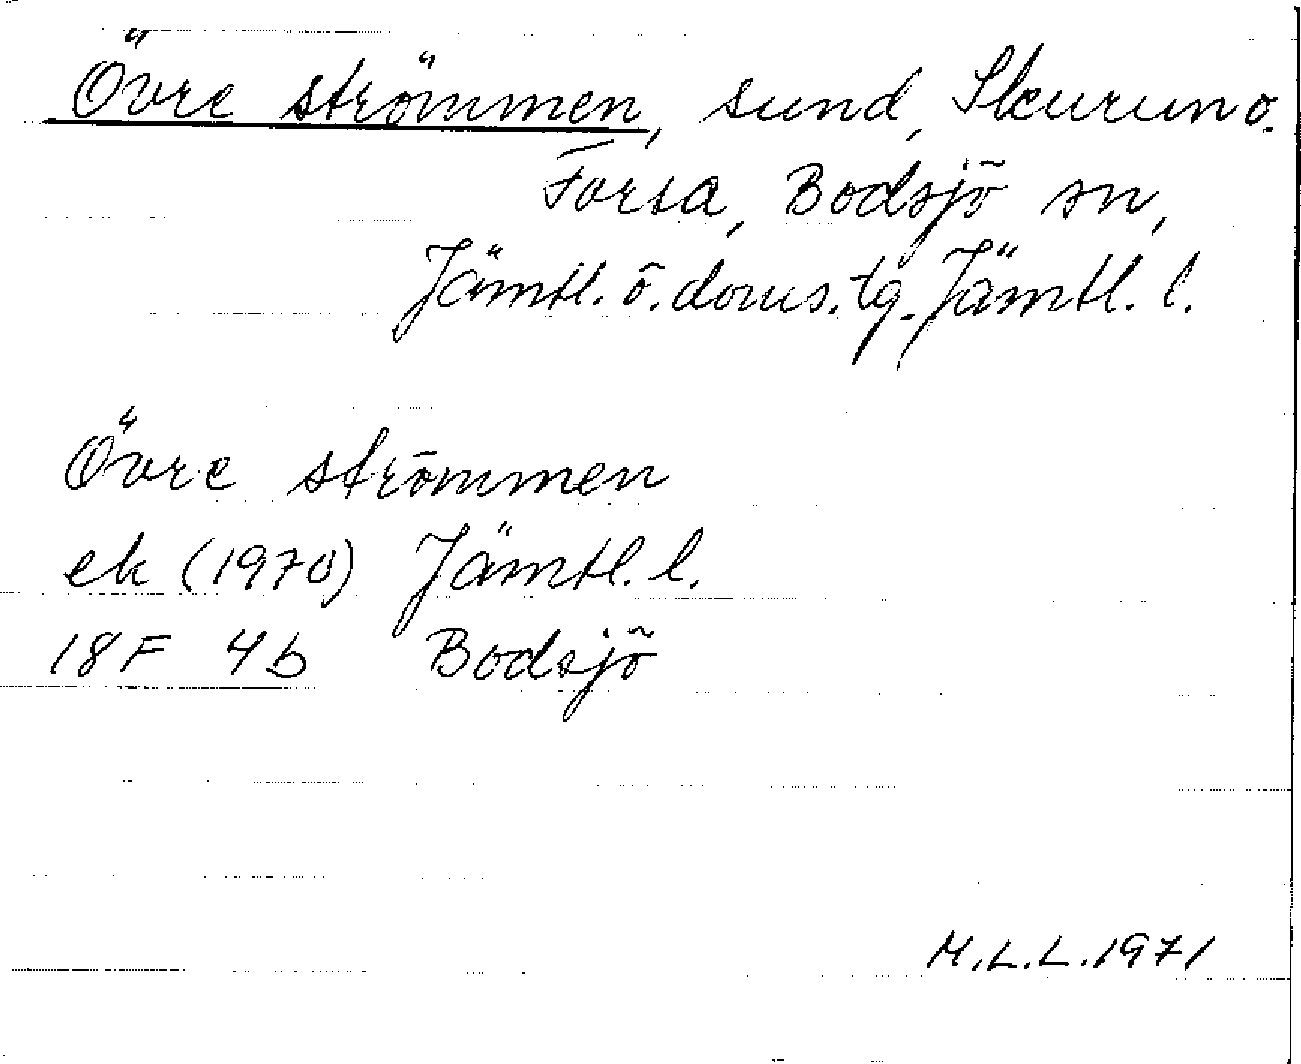 Övre strömmen, sund, Skurun o.
Forsa, Bodsjö sn,
Jämtl. ö. doms. tg. Jämtl. l.
Övre strömmen
ek (1970) Jämtl. l.
18F 4b Bodsjö
M.L.L. 1971